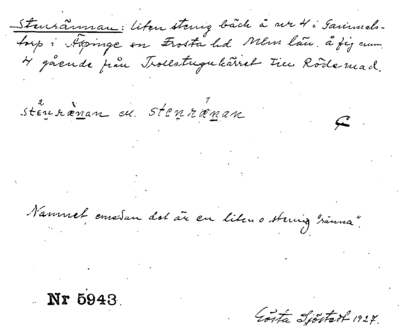 Stenrännan: liten stenig bäck å nr 4 i Gunnels-
torp i Äspinge sn Frosta hd Mlm län. å fig num.
4 gående från Trollstugukärret till Rödemad.
stēn̥ræ̀nan el. sten̥ræ̀nan
Namnet, emedan det är en liten o stenig "ränna".
Nr 5943.
Gösta Sjöstedt 1927.